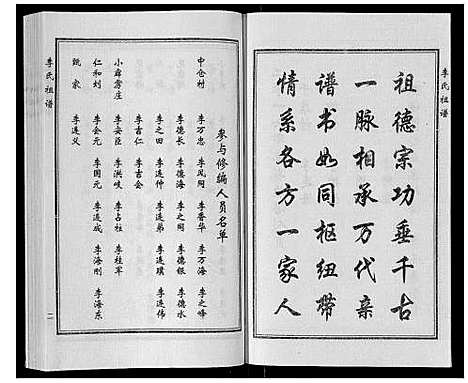 李氏祖谱
祖德宗功垂千古
一脉相承万代亲
谱书如同枢纽带
情系各方一家人
参与修编人员名单
中仓村 李万忠 李风阁 李春华 李万海 李之峰
李德长 李德海 李之国 李德银 李德水
李之田 李连仲 李连弟 李连璞 李连伟
李吉仁 李吉会
小辟雾庄 李安臣 李洪岐 李占柱 李桂军
仁和刘 李会元 李国元 李连成 李海刚 李海东
甄家 李连义
李氏祖谱
二